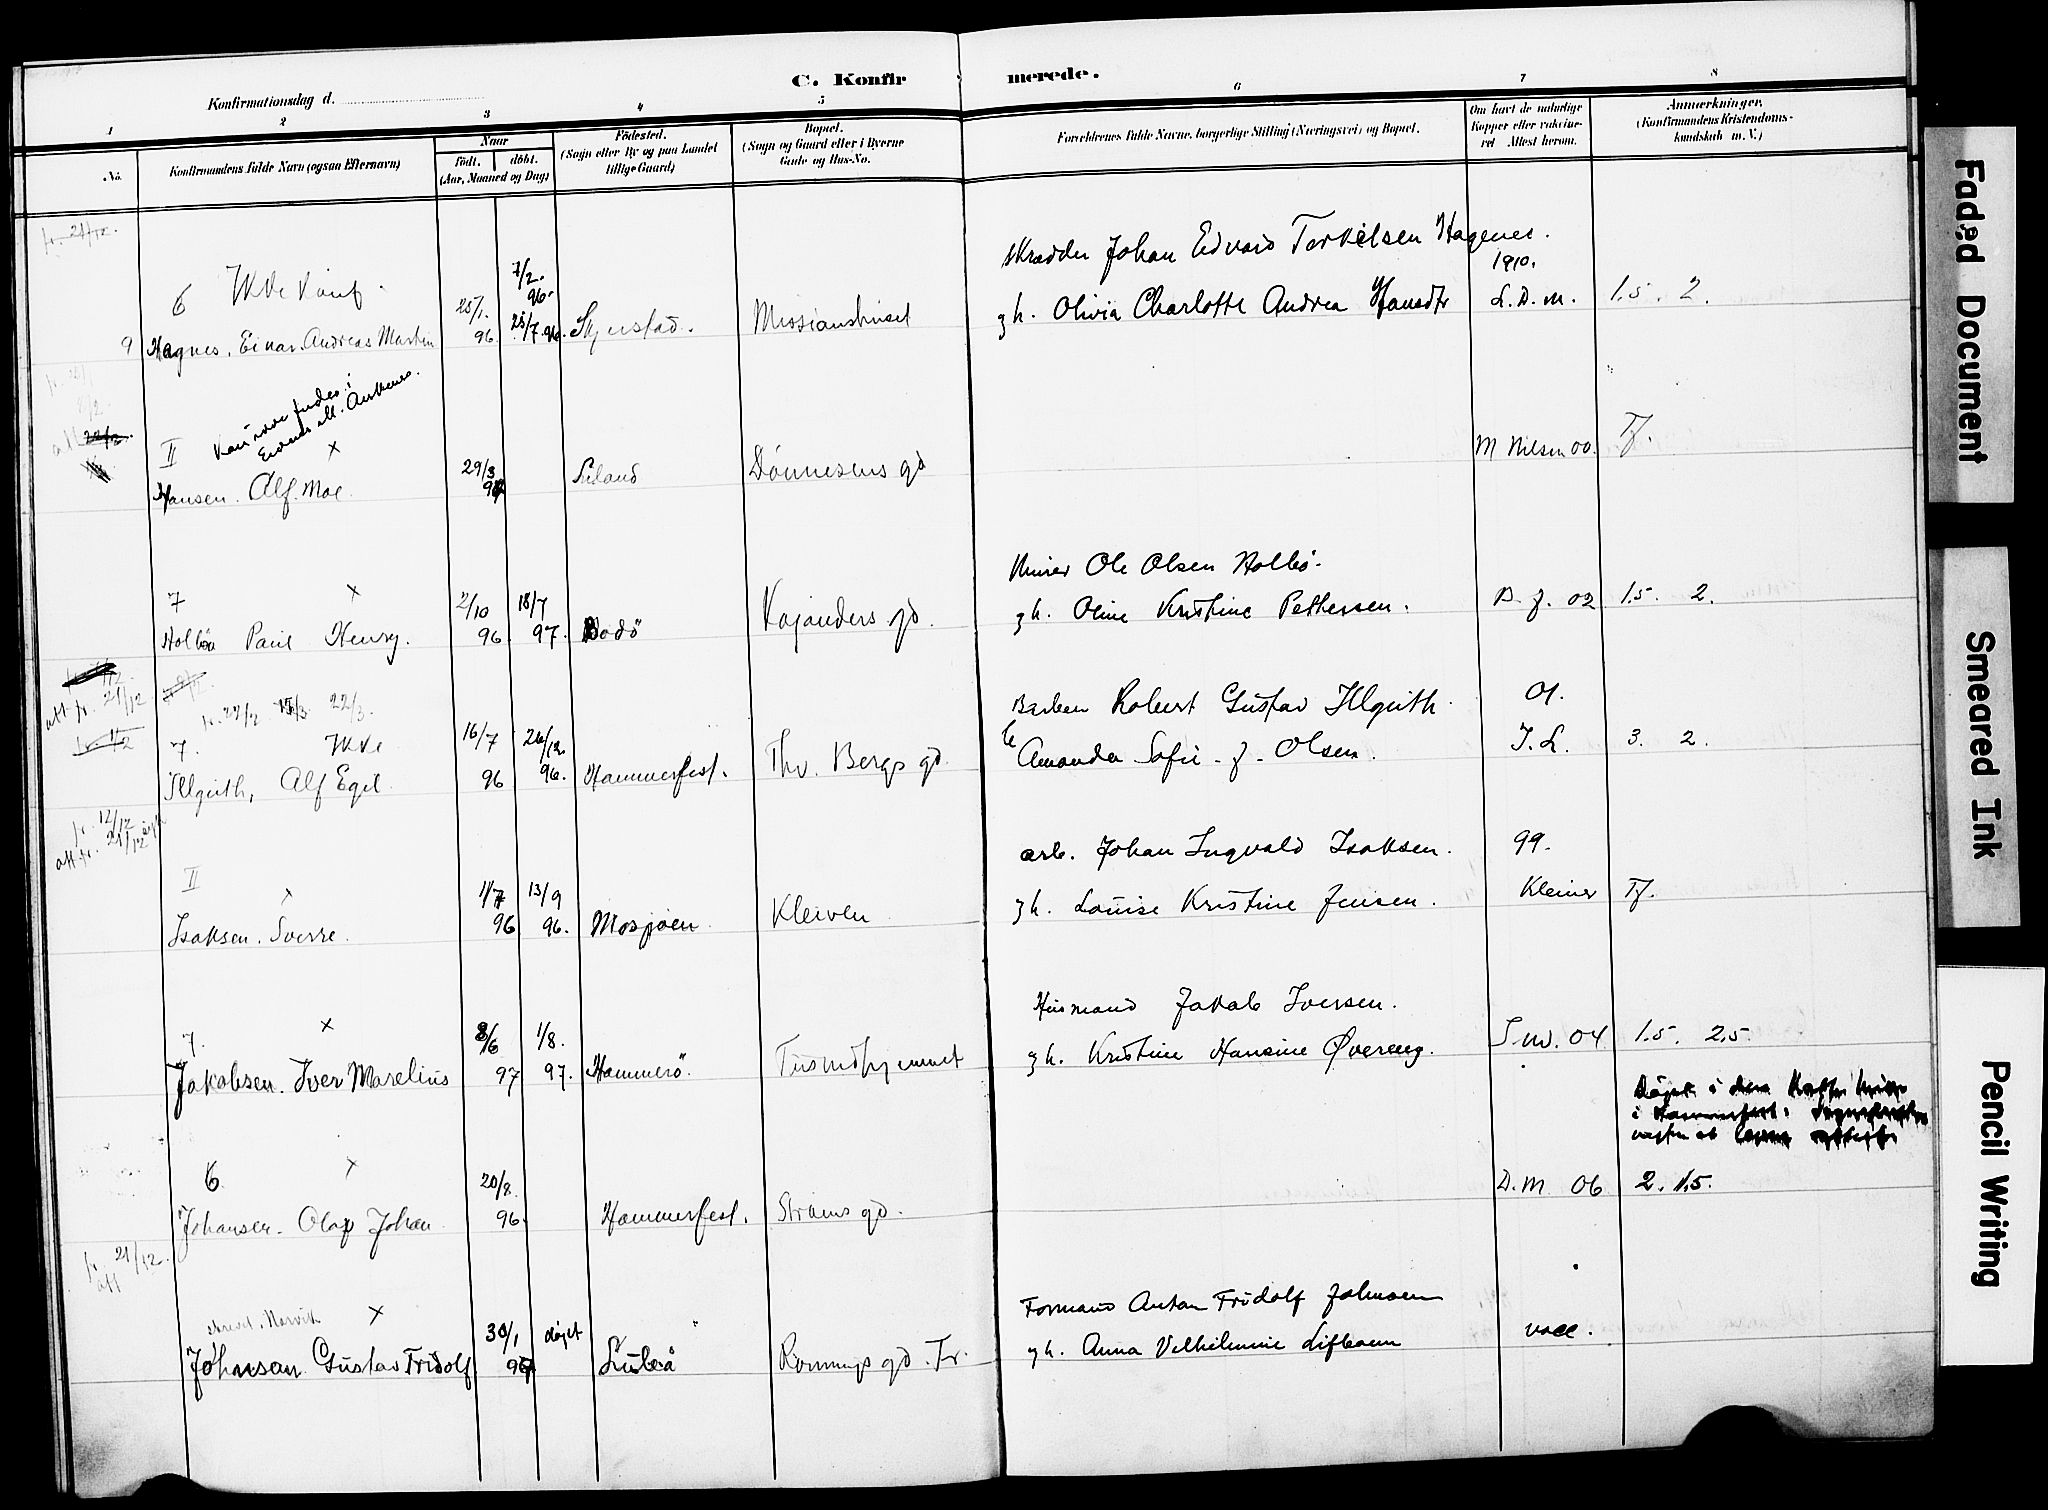 C. Konfir merede.
Konfirmationsdag d.
1 2 3 4 5 6 7 8
No.
Konfirmandens fulde Navn (ogsaa Efternavn)
Naar
födt. döbt.
(Aar, Maaned og Dag)
Födested.
(Sogn eller By og paa Landet
tillige Gaard)
Bopæl.
(Sogn og Gaard eller i Byerne
Gade og Hus-No.
Forældrenes fulde Navne, borgerlige Stilling (Næringsvei) og Bopæl.
Om havt de naturlige
Kopper eller vaksine-
ret Attest herom.
Anmærkninger.
(Konfirmandens Kristendoms-
kundskab m. V.)
fr. 21/12.
6 Ikke Konf.
9 Hagnes, Einar Andreas Martin
25/1. 96
7/2. 96.
25/7 96.
Skjerstad.
Missionshuset
Skrædder Johan Edvard Terkelsen Hagenes.
g h. Olivia Charlotte Andrea Hansdtr
1910.
L. D. M.
1.5. 2.
22/2
II Kan ikke findes i
x
Hansen. Alf. Moe.
29/3 97
Dönnesens gd
M Nilsen 00.
Tf.
7 x
Holböa Paul Henry.
2/10 96
18/7 97.
Bodö
Kajanders gd.
Ole Olsen Holbö.
g h. Oline Kristine Pettersen.
B. J. 02
1.5. 2.
att fr. 21/12
fr. 27/2 15/3 22/3.
7. Ikke
Illguth, Alf Egil.
16/7 96
26/12 96.
Hammerfest.
Thv. Bergs gd.
Barber Robert Gustav Illguth.
Amanda Sofie f. Olsen.
01.
J. L.
3. 2.
fr. 12/12
att fr. 21/12
II x
Isaksen. Sverre.
1/7 96
13/9 96.
Mosjöen
Kleiven
arb. Johan Ingvald Isaksen.
g h. Louise Kristine Jensen.
99.
Kleiner
Tf.
7. x
Jakobsen. Iver Marelius
8/6 97
1/8. 97.
Hammerö.
Husmand Jakob Iversen.
g h. Kristine Hansine Øvereng.
S.W. 04
1.5. 2.5
6 x
Johansen. Olaf Johan.
20/8. 96.
Hammerfest.
Ströms gd.
D. M 06
2. 1.5.
fr. 21/12.
att
x
Johnsan Gustav Fridolf
30/1 96
döpt
Luleå
Rönnings gd. Fr.
Formand Anton Fridolf Johnsen
g h. Anna Vilhelmine
vacc.
Faded Document
Smeared Ink
Pencil Writing